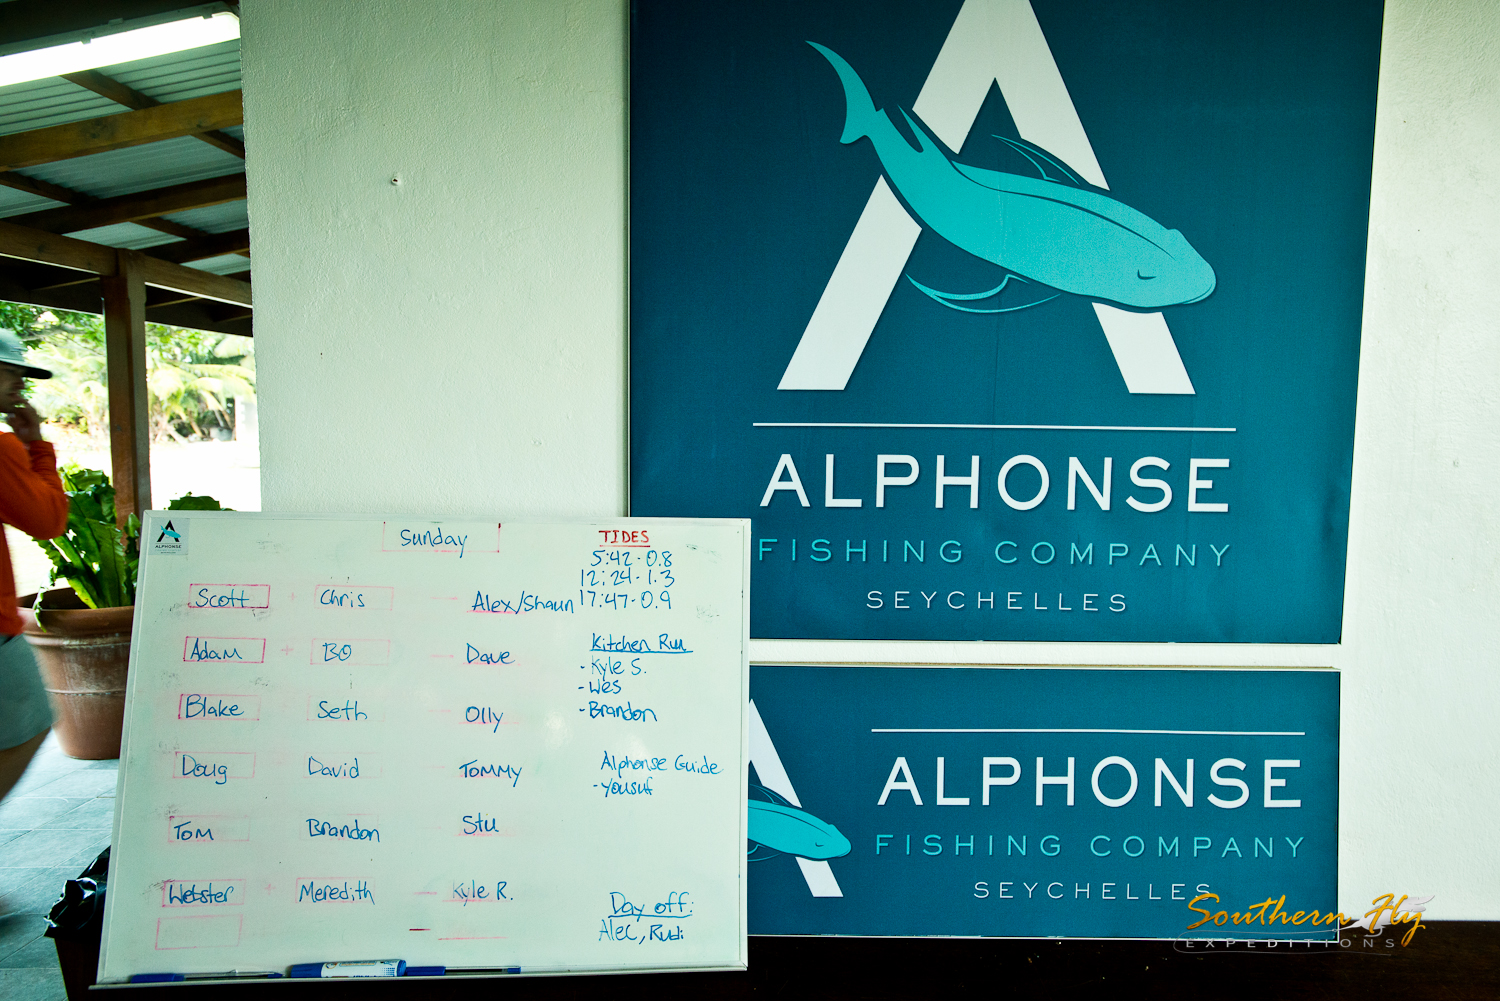 A
ALPHONSE
FISHING COMPANY
SEYCHELLES
A
ALPHONSE
FISHING COMPANY
SEYCHELLES
A
ALPHONSE
Sunday
Scott + Chris — Alex/Shaun
Adam + BO — Dave
Blake Seth — Olly
Doug David — TOMMY
TOM Brandon — Stu
Webster + Meredith — Kyle R.
TIDES
5:42 - 0.8
12:24 - 1.3
17:47 - 0.9
Kitchen Run
- Kyle S.
- Wes
- Brandon
Alphonse Guide
- Yousuf
Day off:
Alec, Rudi
Southern Fly
EXPEDITIONS